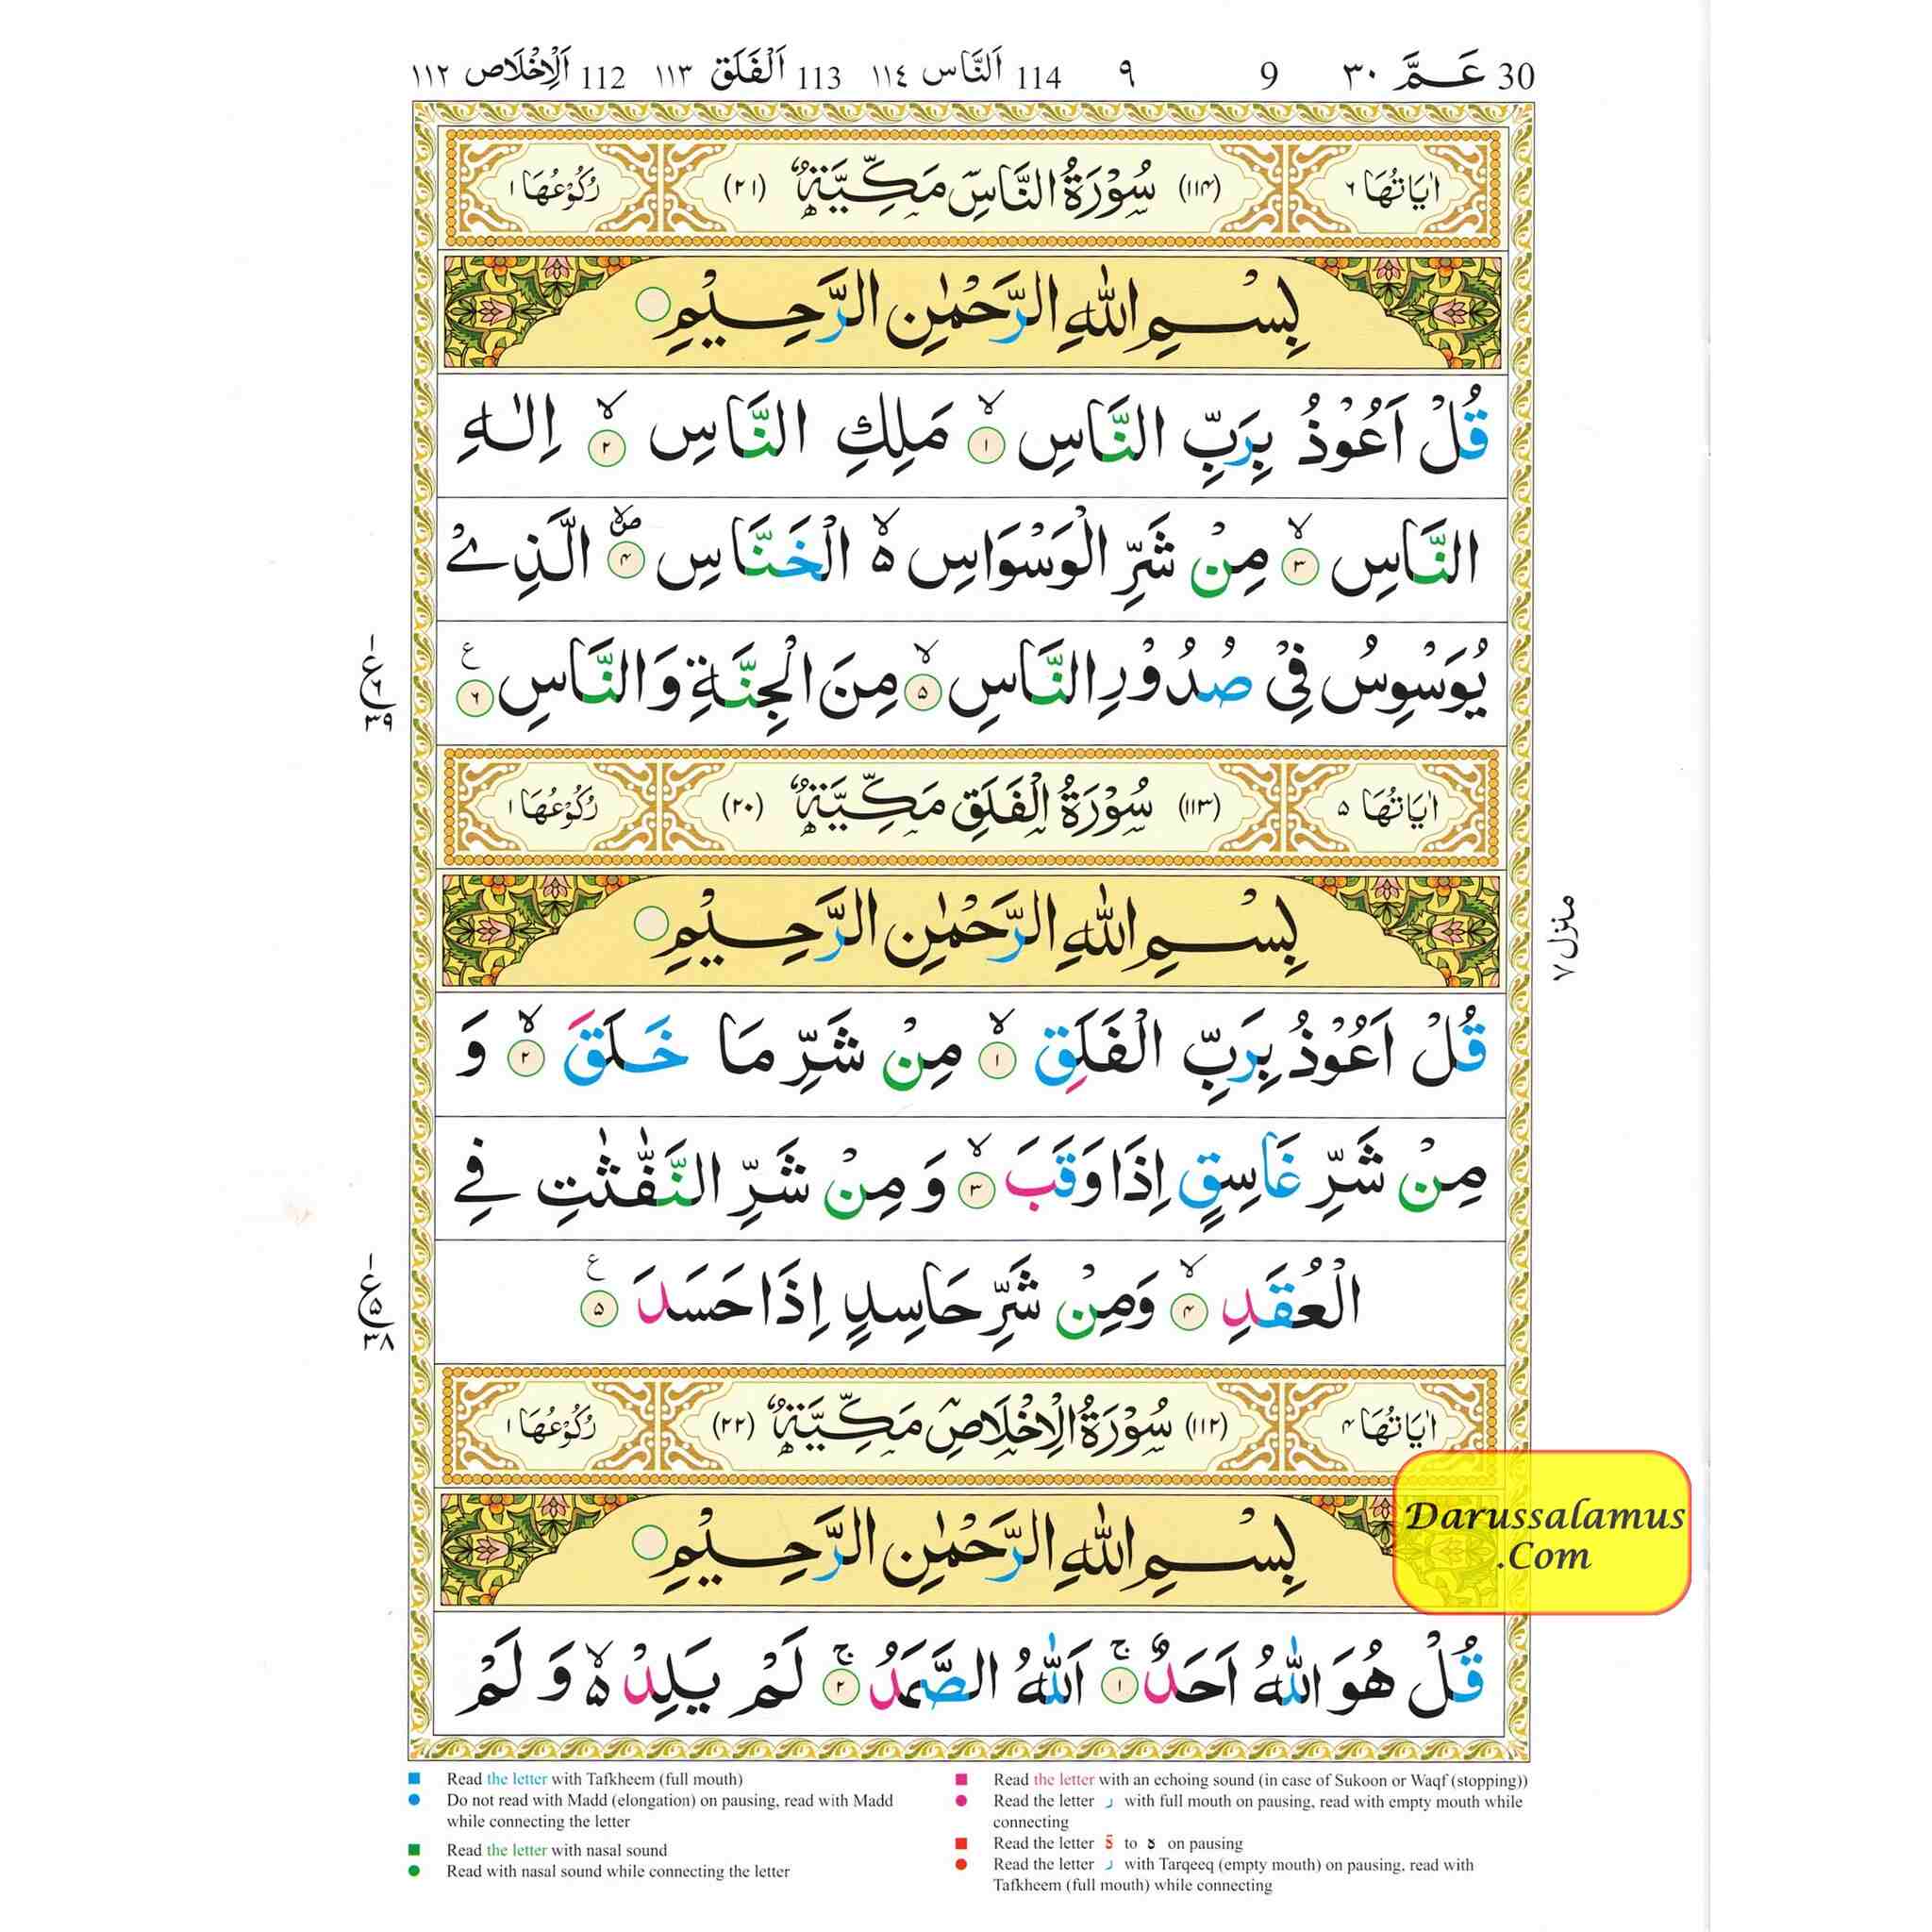 30 عَـمَّ ٣٠ 9 ٩ 114 اَلنَّاس ١١٤ 113 اَلْفَلَق ١١٣ 112 اَلْاِخْلَاص ١١٢
اٰيَاتُهَا ٦ (١١٤) سُوْرَةُ النَّاسِ مَكِّيَّةٌ (٢١) رُكُوْعُهَا ١
بِسْمِ اللّٰهِ الرَّحْمٰنِ الرَّحِيْمِ
قُلْ اَعُوْذُ بِرَبِّ النَّاسِ ۙ ١ مَلِكِ النَّاسِ ۙ ٢ اِلٰهِ
النَّاسِ ۙ ٣ مِنْ شَرِّ الْوَسْوَاسِ ۙ۬ الْخَنَّاسِ ۪ۙ ٤ الَّذِيْ
يُوَسْوِسُ فِيْ صُدُوْرِ النَّاسِ ۙ ٥ مِنَ الْجِنَّةِ وَالنَّاسِ ع ٦
ع ١ ٦ ٣٩
اٰيَاتُهَا ٥ (١١٣) سُوْرَةُ الْفَلَقِ مَكِّيَّةٌ (٢٠) رُكُوْعُهَا ١
بِسْمِ اللّٰهِ الرَّحْمٰنِ الرَّحِيْمِ
منزل ٧
قُلْ اَعُوْذُ بِرَبِّ الْفَلَقِ ۙ ١ مِنْ شَرِّ مَا خَلَقَ ۙ ٢ وَ
مِنْ شَرِّ غَاسِقٍ اِذَا وَقَبَ ۙ ٣ وَ مِنْ شَرِّ النَّفّٰثٰتِ فِي
الْعُقَدِ ۙ ٤ وَمِنْ شَرِّ حَاسِدٍ اِذَا حَسَدَ ع ٥
ع ١ ٥ ٣٨
اٰيَاتُهَا ٤ (١١٢) سُوْرَةُ الْاِخْلَاصِ مَكِّيَّةٌ (٢٢) رُكُوْعُهَا ١
بِسْمِ اللّٰهِ الرَّحْمٰنِ الرَّحِيْمِ
Darussalamus
.Com
قُلْ هُوَ اللّٰهُ اَحَدٌ ۚ ١ اَللّٰهُ الصَّمَدُ ۚ ٢ لَمْ يَلِدْ ۙ۬ وَ لَمْ
Read the letter with Tafkheem (full mouth)
Do not read with Madd (elongation) on pausing, read with Madd
while connecting the letter
Read the letter with nasal sound
Read with nasal sound while connecting the letter
Read the letter with an echoing sound (in case of Sukoon or Waqf (stopping))
Read the letter ر with full mouth on pausing, read with empty mouth while
connecting
Read the letter ة to ه on pausing
Read the letter ر with Tarqeeq (empty mouth) on pausing, read with
Tafkheem (full mouth) while connecting